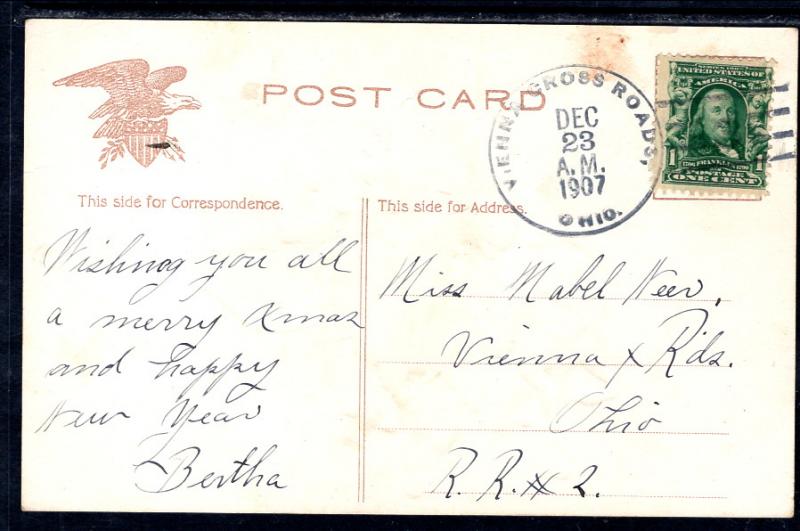 POST CARD
VIENNA CROSS ROADS,
DEC
23
A.M.
1907
OHIO.
SERIES 1902
UNITED STATES OF
AMERICA
1 1706 FRANKLIN 1790 1
POSTAGE
ONE CENT
This side for Correspondence.
This side for Address.
Wishing you all
a merry Xmas
and happy
New Year
Bertha
Miss Mabel Neer,
Vienna x Rds.
Ohio
R. R. # 2.